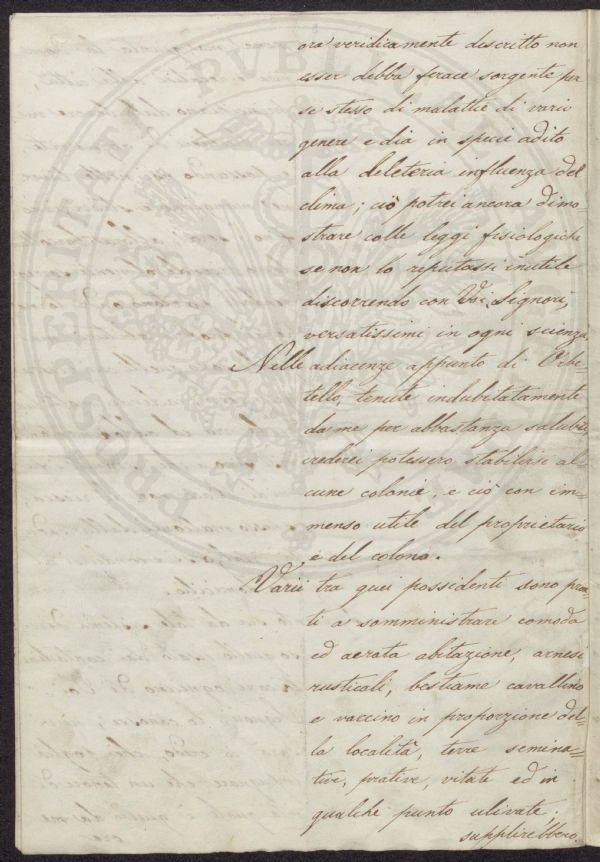 ora veridicamente descritto non
esser debba ferace sorgente per
se stesso di malattie di vario
genere e dia in specie adito
alla deleteria influenza del
clima; ciò potrei ancora dimo=
strare colle leggi fisiologiche
se non lo reputassi inutile
discorrendo con Voi Signori,
versatissimi in ogni scienza
Nelle adiacenze appunto di Orbe=
tello, tenute indubitatamente
da me per abbastanza salubri,
crederei potessero stabilirsi al=
cune colonie, e ciò con im=
menso utile del proprietario
e del colono.
Varii tra quei possidenti sono pron=
ti a somministrare comoda
ed aerata abitazione, arnesi
rusticali, bestiame cavallino
e vaccino in proporzione del=
la località, terre semina=
tive, prative, vitate ed in
qualche punto ulivate;
supplirebbero
PROSPERITATI PUBLICAE